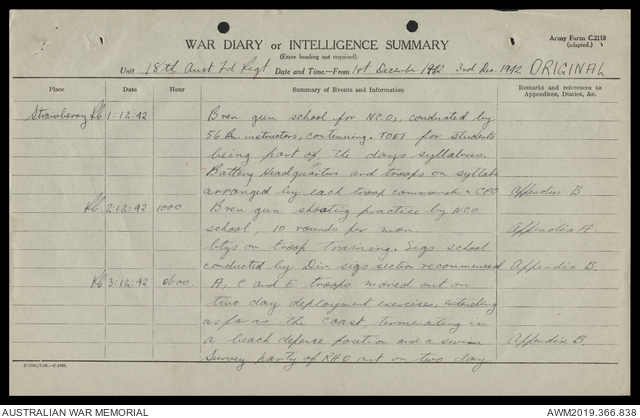 Army Form C.2118
(adapted.)
WAR DIARY or INTELLIGENCE SUMMARY
(Erase heading not required).
Unit 18th Aust Fd Regt Date and Time—From 1st December 1942 3rd Dec. 1942 ORIGINAL
Place Date Hour Summary of Events and Information Remarks and references to
Appendices, Diaries, &c.
Strawberry 1:12:42 Bren gun school for N.C.O's, conducted by
56 Bn. instructors, continuing. for students
being part of the days syllabus.
Battery Headquarters and troops on syllabi
arranged by each troop commander & Appendix B
2:12:42 1000 Bren gun shooting practice by NCO
school, 10 rounds per man. Appendix A.
btys on troop training. Sigs school
conducted by Div. sigs section recommenced Appendix B.
3:12:42 0600. A, C and E troops moved out on
two day deployment exercises, extending
as far as the coast, terminating in
a beach defence position and a swim Appendix B.
Survey party of RHQ out on two day
AUSTRALIAN WAR MEMORIAL AWM2019.366.838